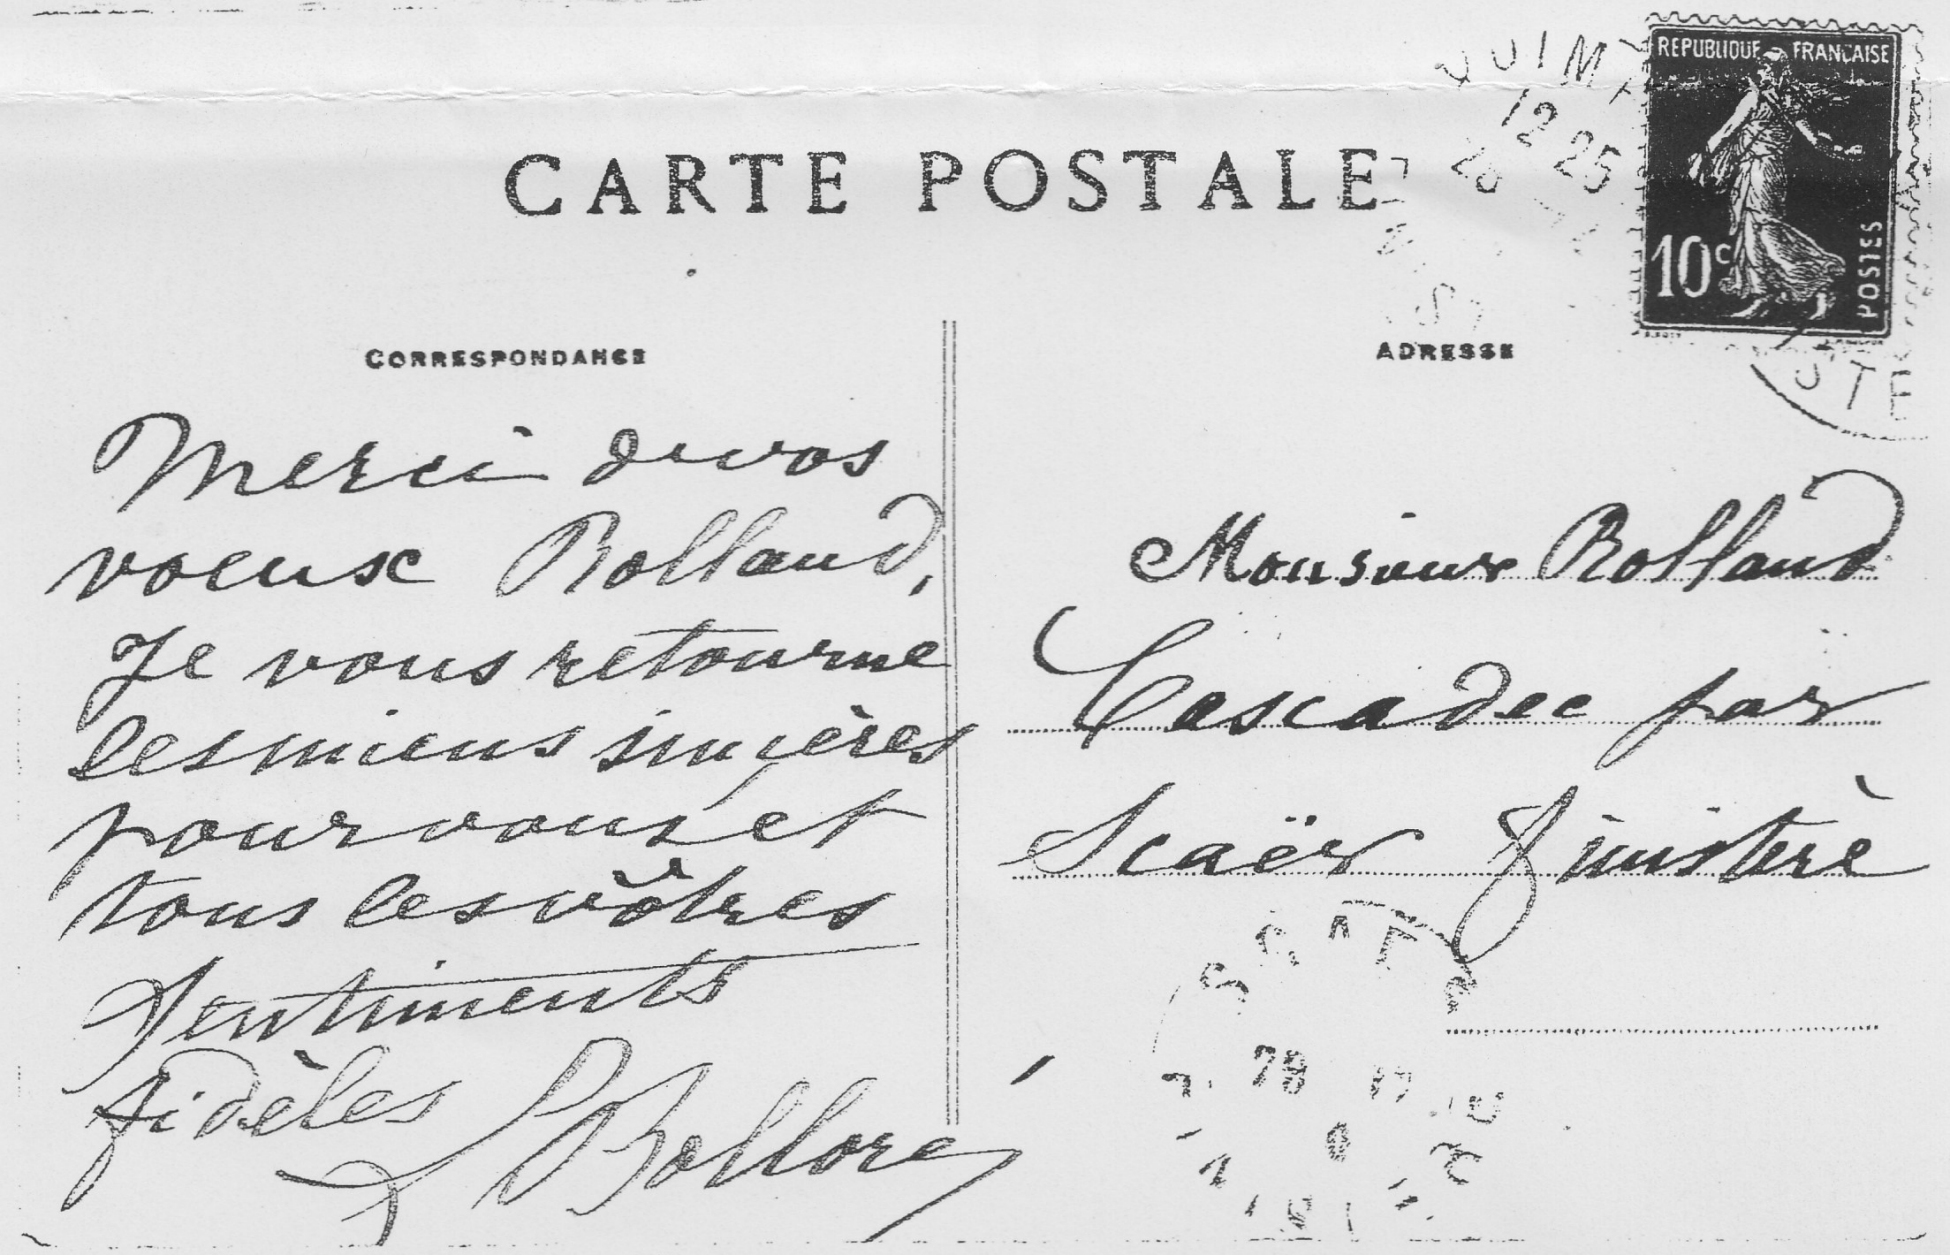 CARTE POSTALE
REPUBLIQUE FRANÇAISE
10c
POSTES
QUIMP
12 25
STE
CORRESPONDANCE
Merci de vos
voeux Rolland,
Je vous retourne
les miens sincères
pour vous et
tous les vôtres
Sentiments
fidèles
Bolloré
ADRESSE
Monsieur Rolland
Cascadec par
Scaër Finistère